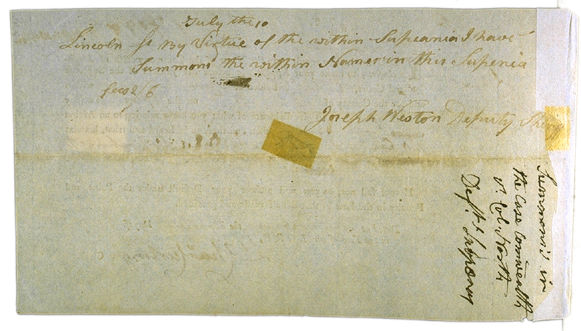 July the 10
Lincoln ss By Virtue of the within Supeania I have
Summons the within Names in this Supenia
fees 2/6
Joseph Weston Deputy Sheff
Summons's in
the Case Comwealth
vs. Col. North
Defts Subpoena